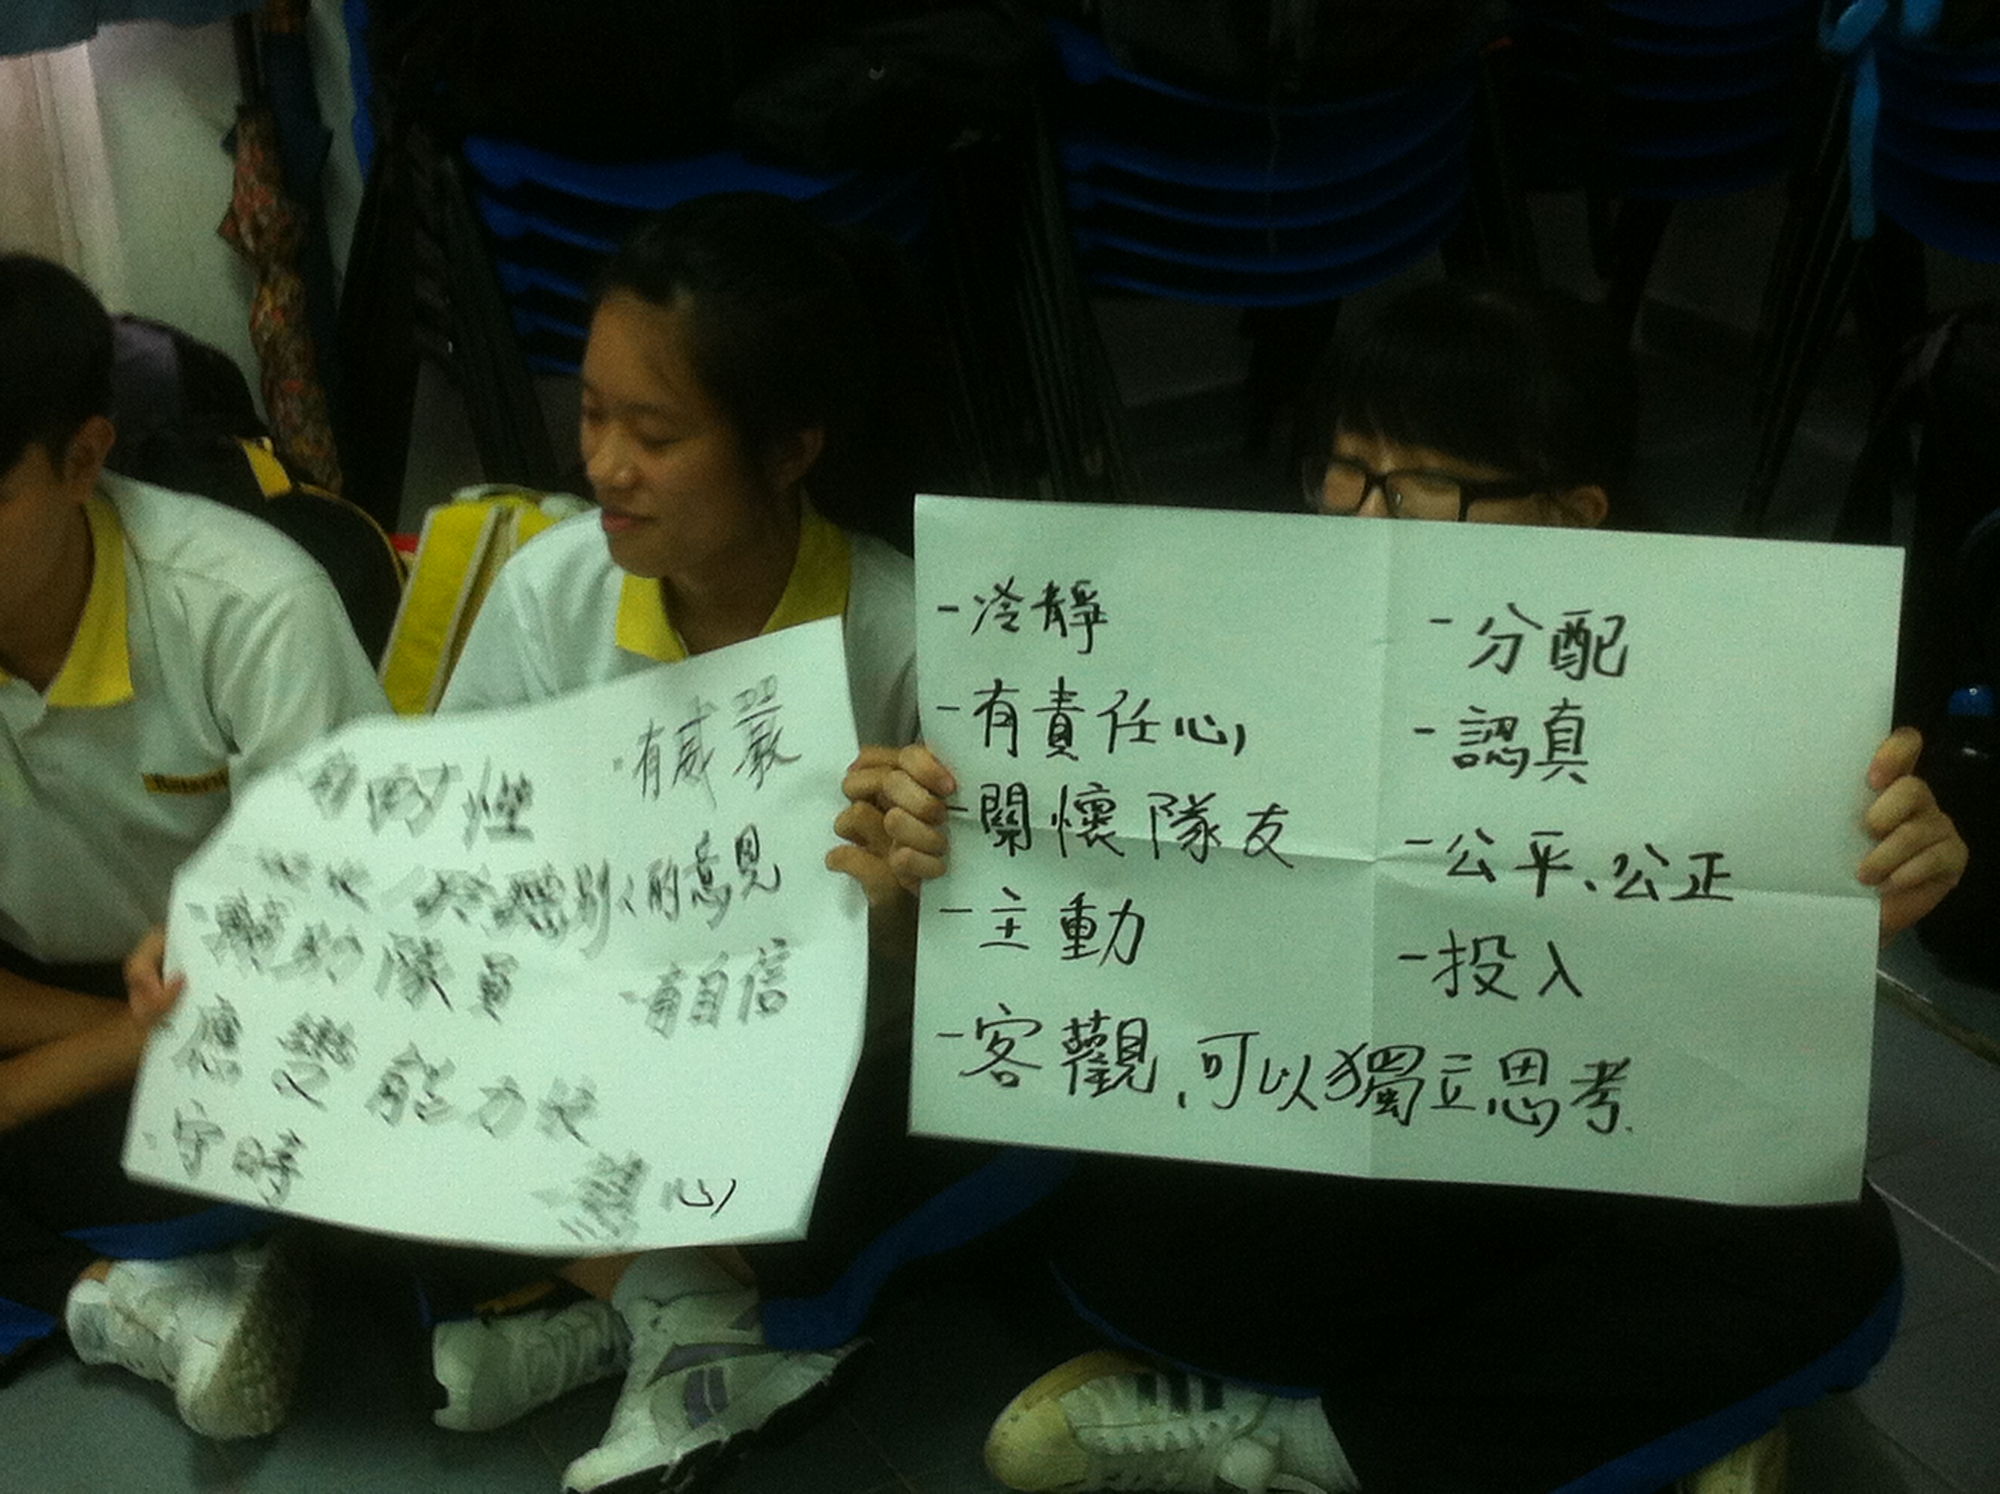 有耐性
·有威嚴
別人的意見
隊員
·有自信
·應變能力
·守時
心
-冷靜
-有責任心
-關懷隊友
-主動
-客觀、可以獨立思考.
-分配
-認真
-公平、公正
-投入